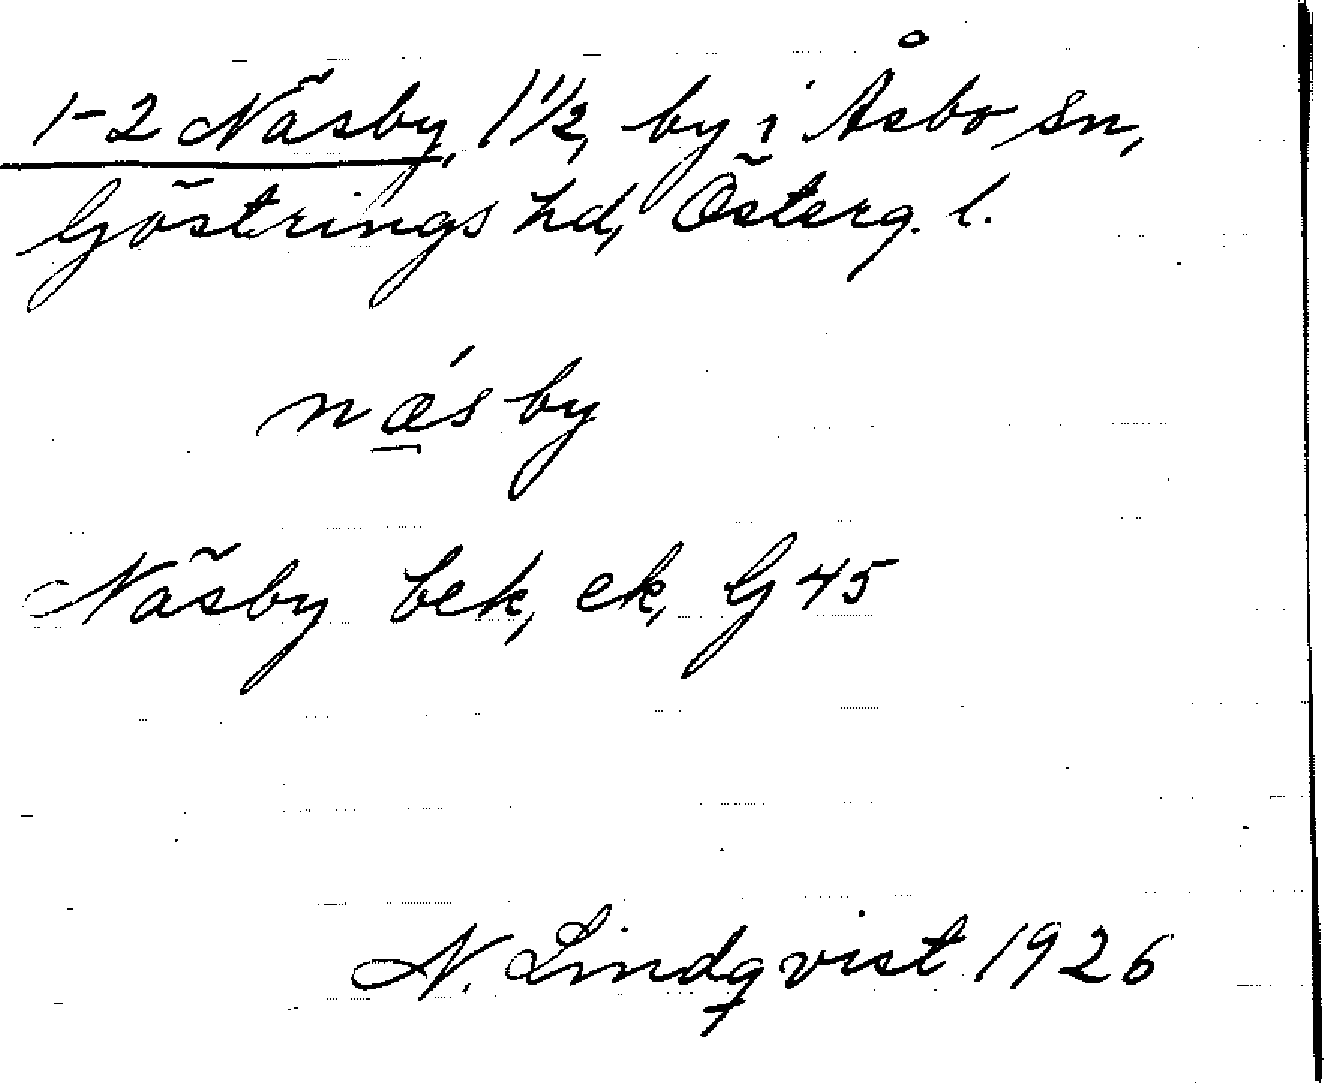 1-2 Näsby, 1 1/2, by i Åsbo sn,
Göstrings hd, Österg. l.
nǽ̲sby
Näsby bek, ek, G 45
N. Lindqvist 1926